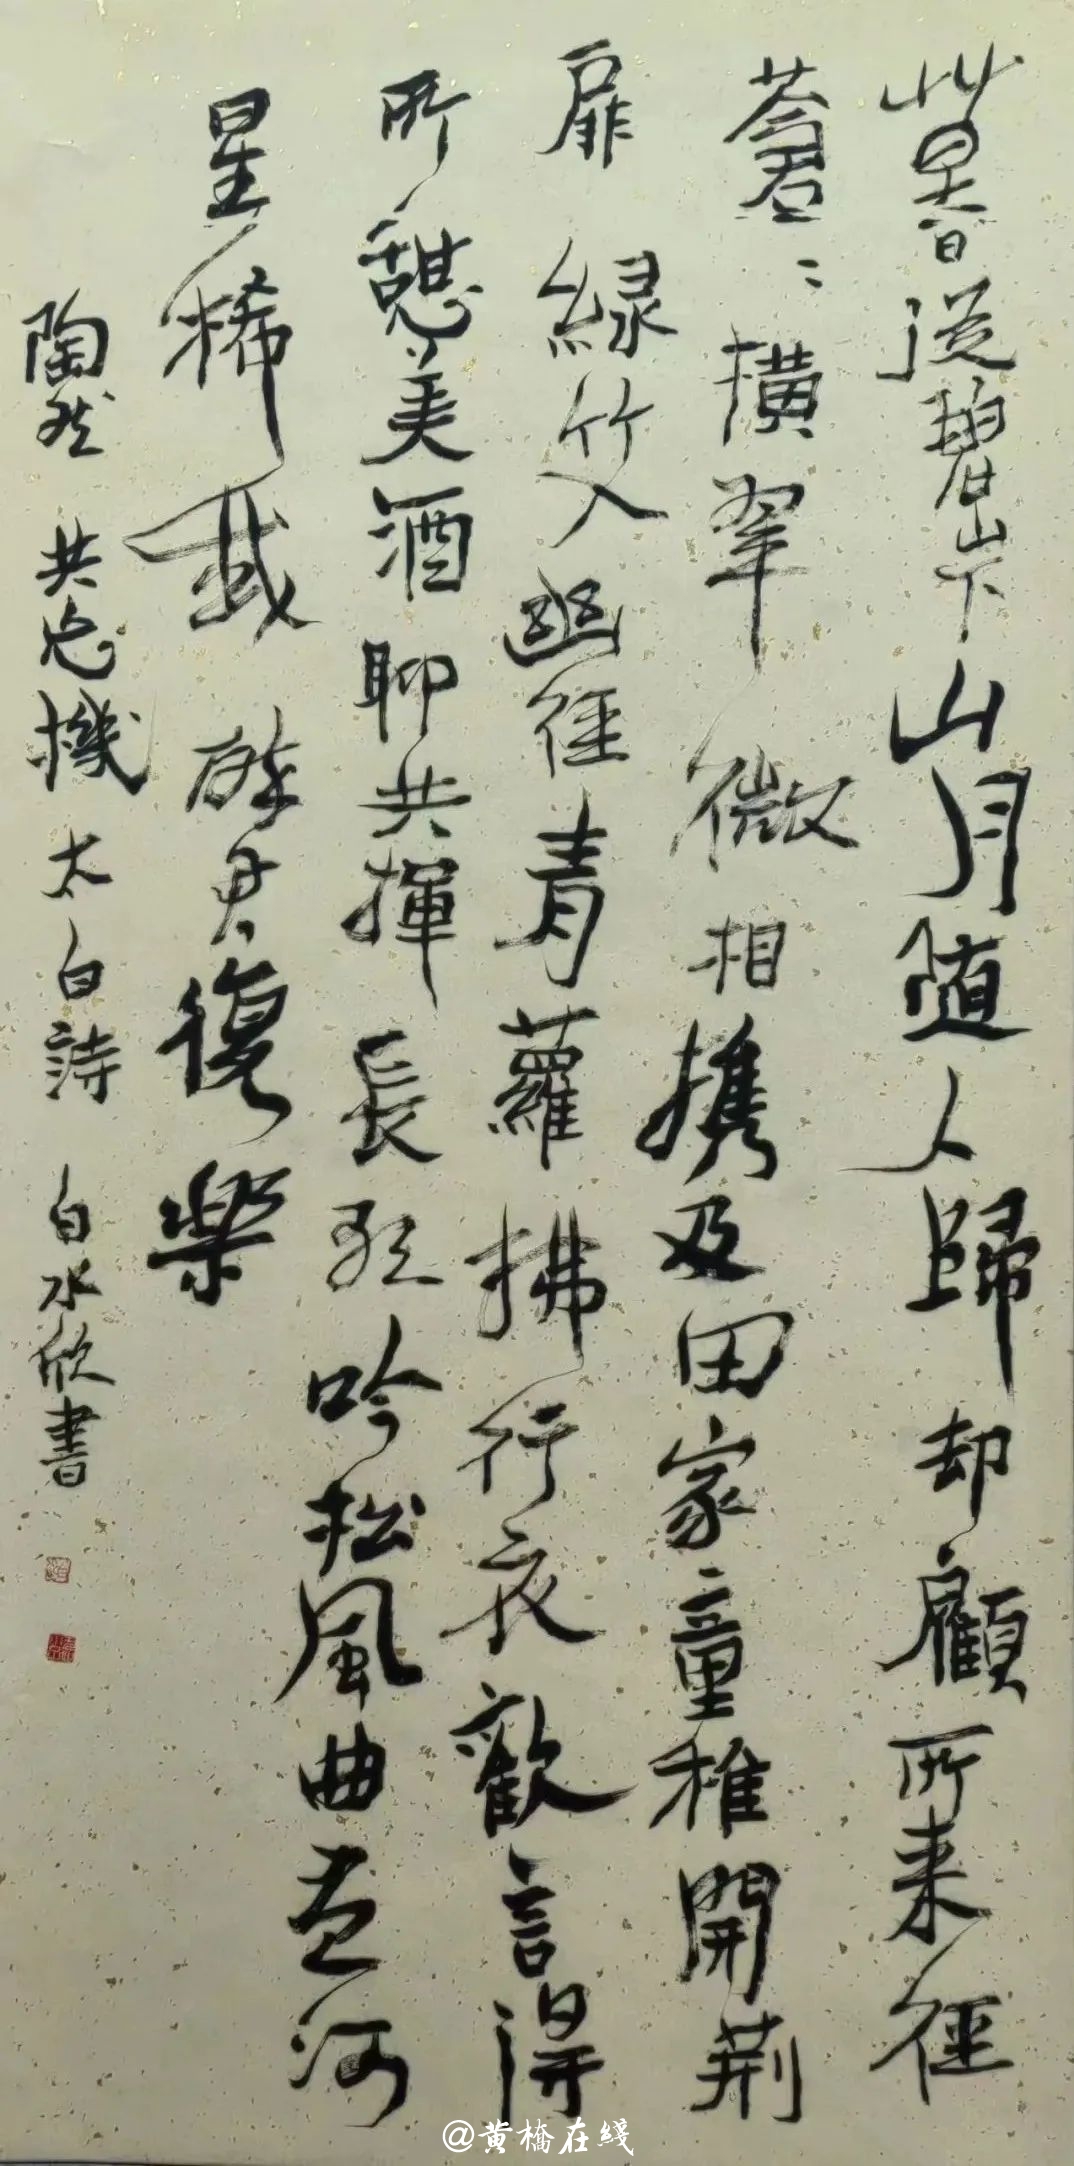 暮從碧山下山月随人歸却顧所来徑
蒼〻横翠微相携及田家童稚開荆
扉緑竹入幽徑青蘿拂行衣歡言得
所憩美酒聊共揮長歌吟松風曲盡河
星稀我醉君復樂
陶然共忘機太白詩白水欣書
@黄橋在綫